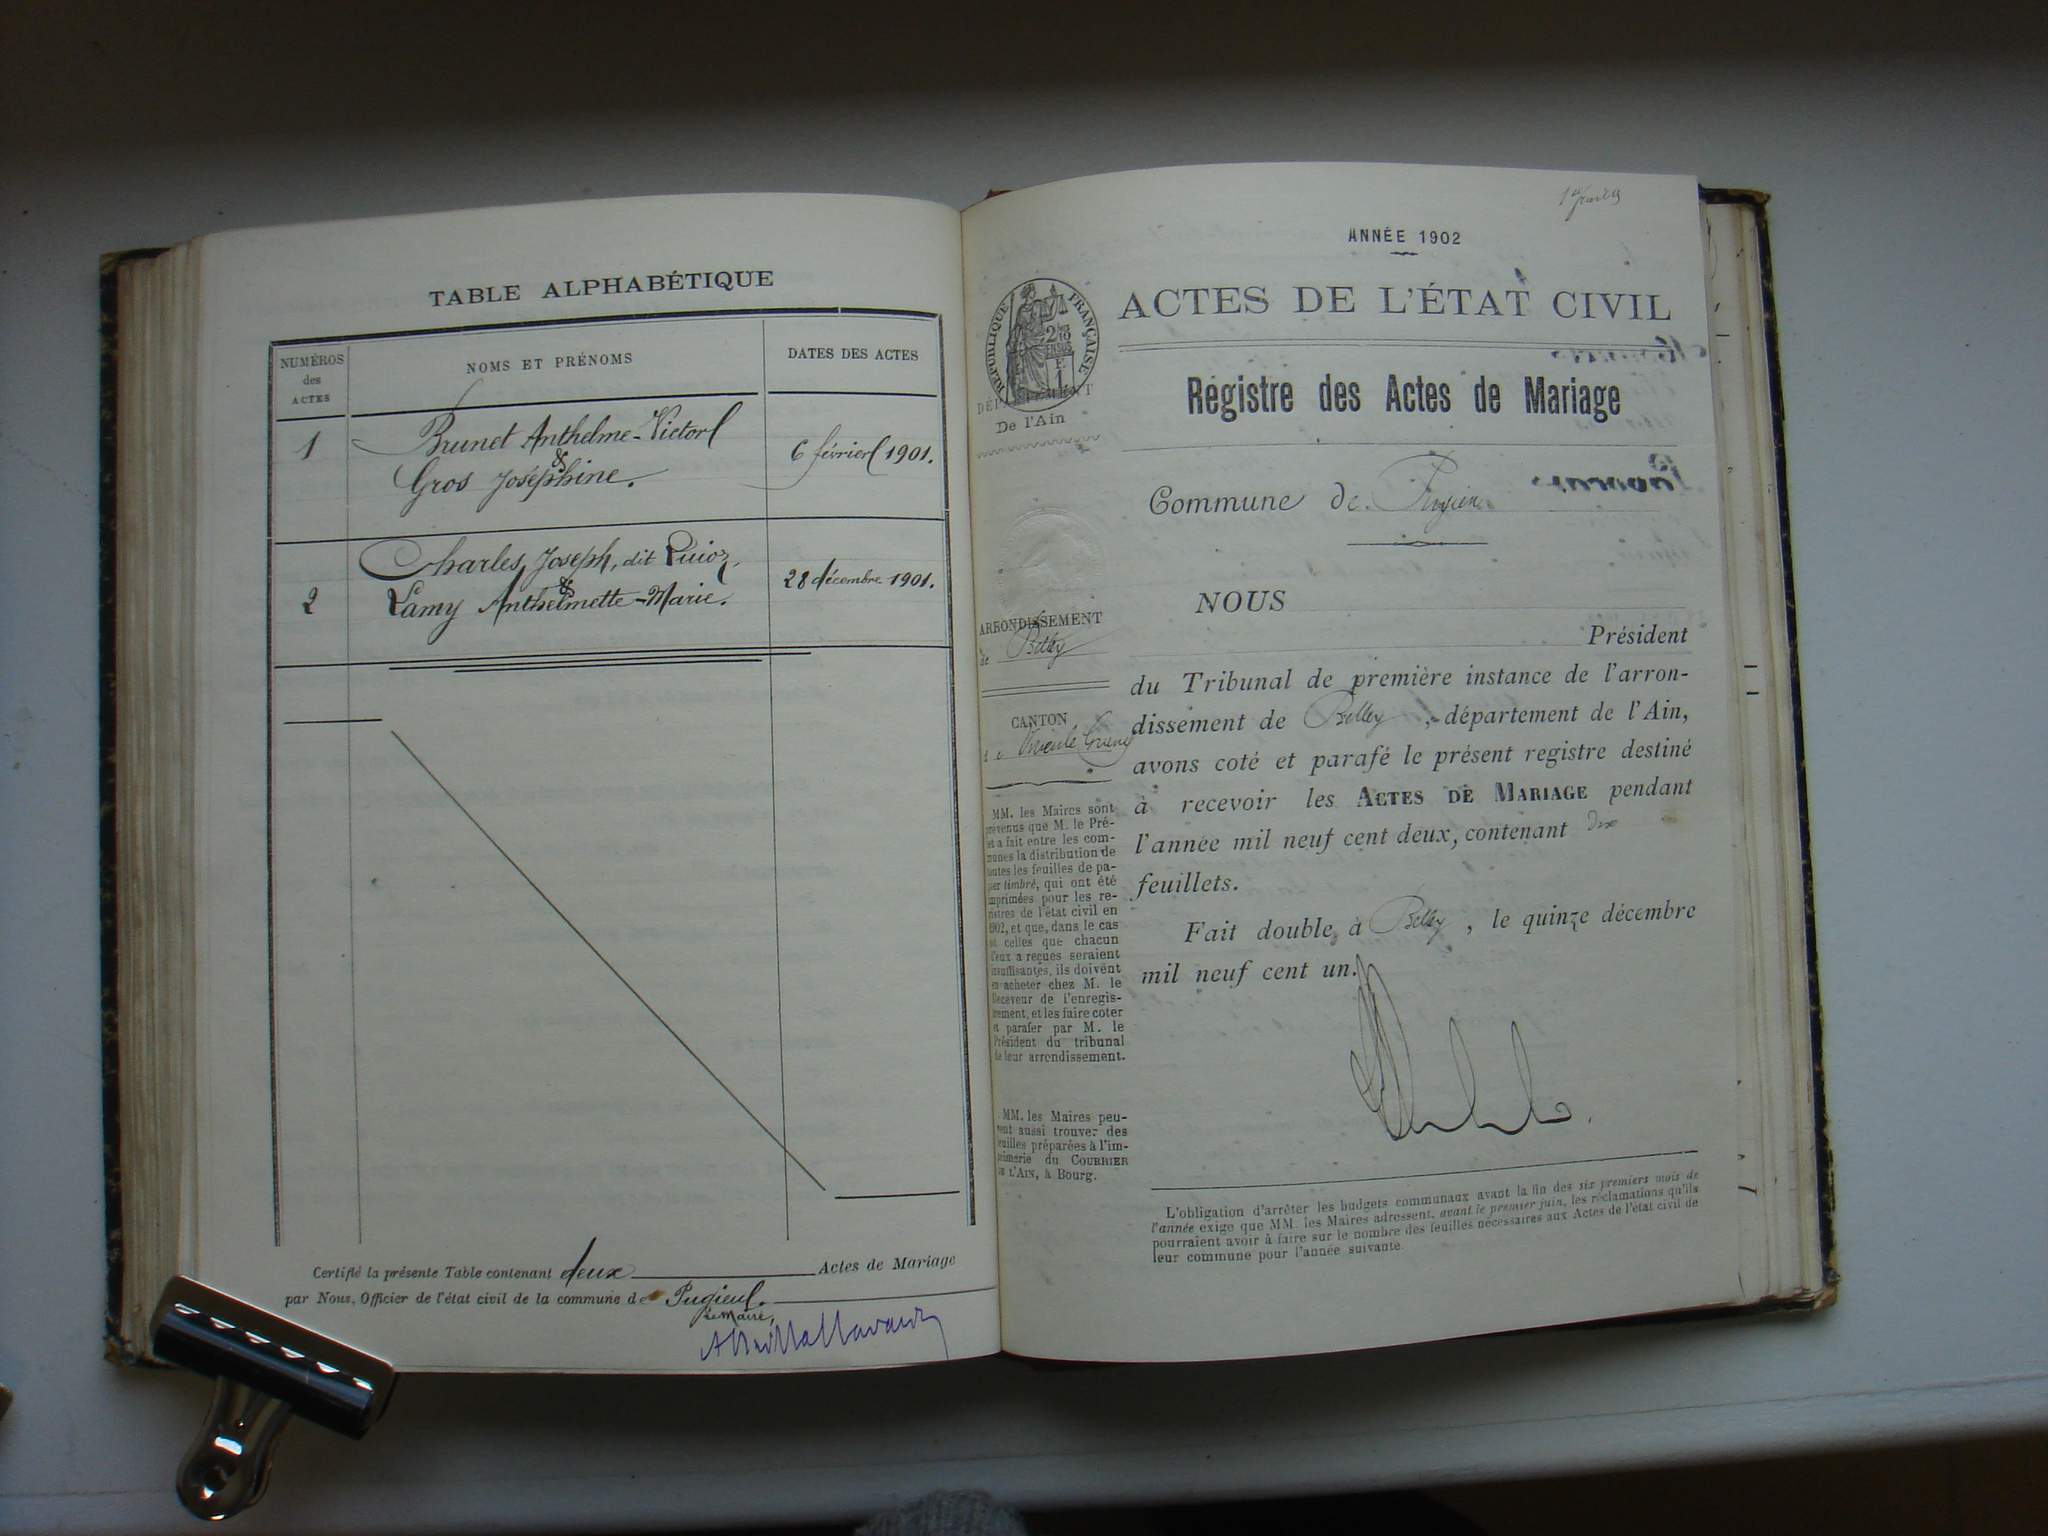 TABLE ALPHABÉTIQUE
NUMÉROS
des
ACTES
NOMS ET PRÉNOMS
DATES DES ACTES
1
Brunet Anthelme-Victor
&
Gros Joséphine.
6 février 1901.
2
Charles Joseph, dit Quioz,
&
Lamy Anthelmette-Marie.
28 décembre 1901.
Certifié la présente Table contenant deux Actes de Mariage
par Nous, Officier de l'état civil de la commune de Pugieu.
Le Maire,
ANNÉE 1902
ACTES DE L'ÉTAT CIVIL
RÉPUBLIQUE FRANÇAISE
DÉPARTEMENT
De l'Ain
Registre des Actes de Mariage
Commune de Pugieu
ARRONDISSEMENT
de Belley
CANTON
MM. les Maires sont
prévenus que M. le Pré-
et a fait entre les com-
munes la distribution de
toutes les feuilles de pa-
pier timbré, qui ont été
imprimées pour les re-
gistres de l'état civil en
1902, et que, dans le cas
où celles que chacun
d'eux a reçues seraient
insuffisantes, ils doivent
en acheter chez M. le
Receveur de l'enregis-
trement, et les faire coter
et parafer par M. le
Président du tribunal
de leur arrondissement.
MM. les Maires peu-
vent aussi trouver des
feuilles préparées à l'im-
primerie du COURRIER
DE L'AIN, à Bourg.
NOUS
Président
du Tribunal de première instance de l'arron-
dissement de Belley, département de l'Ain,
avons coté et parafé le présent registre destiné
à recevoir les ACTES DE MARIAGE pendant
l'année mil neuf cent deux, contenant dix
feuillets.
Fait double à Belley, le quinze décembre
mil neuf cent un.
L'obligation d'arrêter les budgets communaux avant la fin des six premiers mois de
l'année exige que MM. les Maires adressent, avant le premier juin, les réclamations qu'ils
pourraient avoir à faire sur le nombre des feuilles nécessaires aux Actes de l'état civil de
leur commune pour l'année suivante.